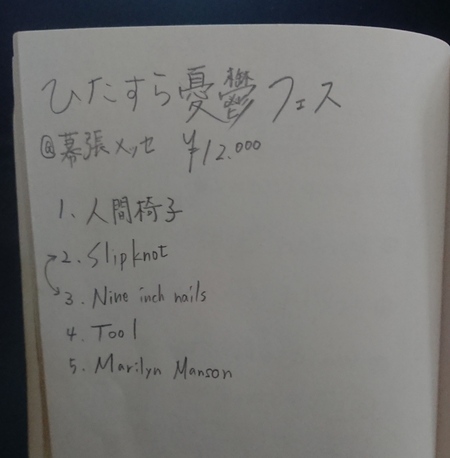 ひたすら憂鬱フェス
@幕張メッセ ¥12.000
1. 人間椅子
2. Slipknot
3. Nine inch nails
4. Tool
5. Marilyn Manson